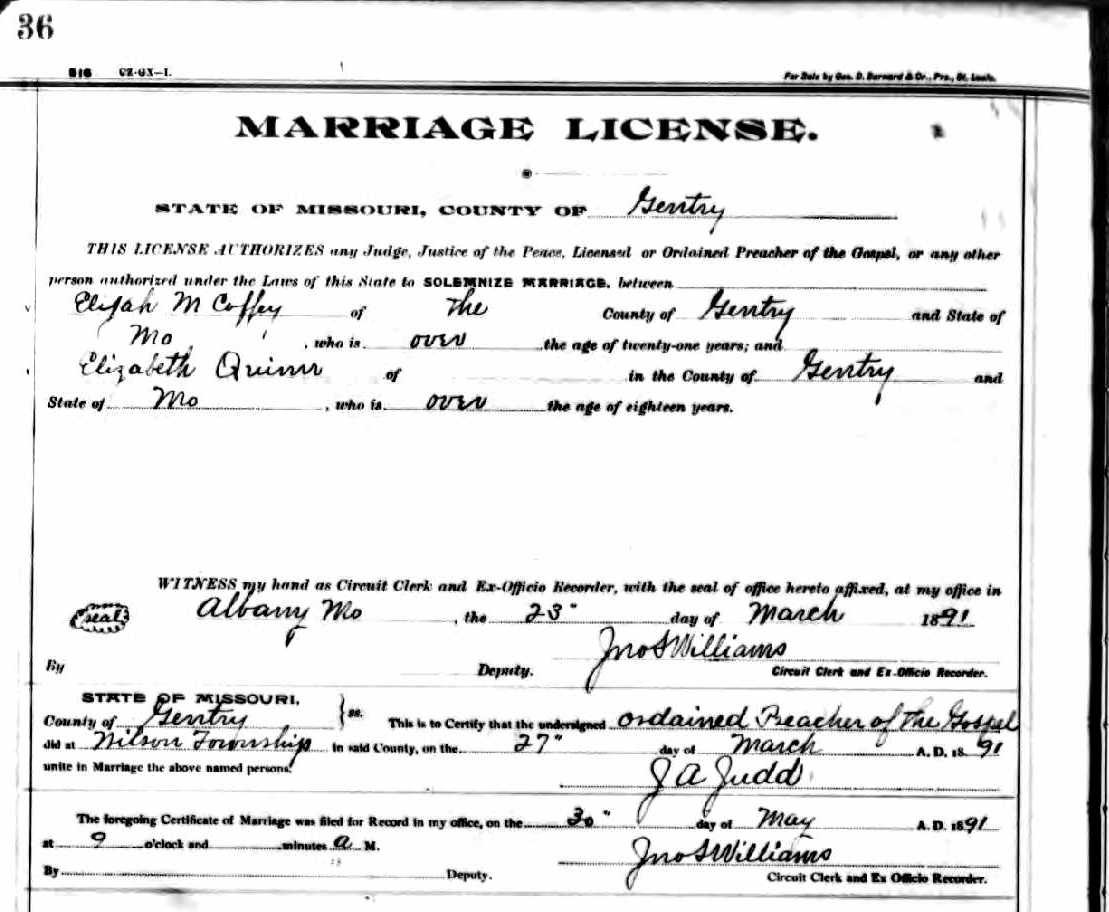 36
516 CZ-GX-1. For Sale by Geo. D. Barnard & Co., Prs., St. Louis.
MARRIAGE LICENSE.
STATE OF MISSOURI, COUNTY OF Gentry
THIS LICENSE AUTHORIZES any Judge, Justice of the Peace, Licensed or Ordained Preacher of the Gospel, or any other
person authorized under the Laws of this State to SOLEMNIZE MARRIAGE, between
Elijah M Coffey of The County of Gentry and State of
Mo , who is over the age of twenty-one years; and
Elizabeth Quinn of in the County of Gentry and
State of Mo , who is over the age of eighteen years.
WITNESS my hand as Circuit Clerk and Ex-Officio Recorder, with the seal of office hereto affixed, at my office in
(seal) Albany Mo , the 23" day of March 1891.
Jno S Williams
By Deputy. Circuit Clerk and Ex-Officio Recorder.
STATE OF MISSOURI,
County of Gentry } ss. This is to Certify that the undersigned Ordained Preacher of The Gospel
did at Wilson Township in said County, on the 27" day of March A. D. 1891
unite in Marriage the above named persons. J A Judd
The foregoing Certificate of Marriage was filed for Record in my office, on the 30" day of May A. D. 1891
at 9 o'clock and minutes a M. Jno S Williams
By Deputy. Circuit Clerk and Ex Officio Recorder.